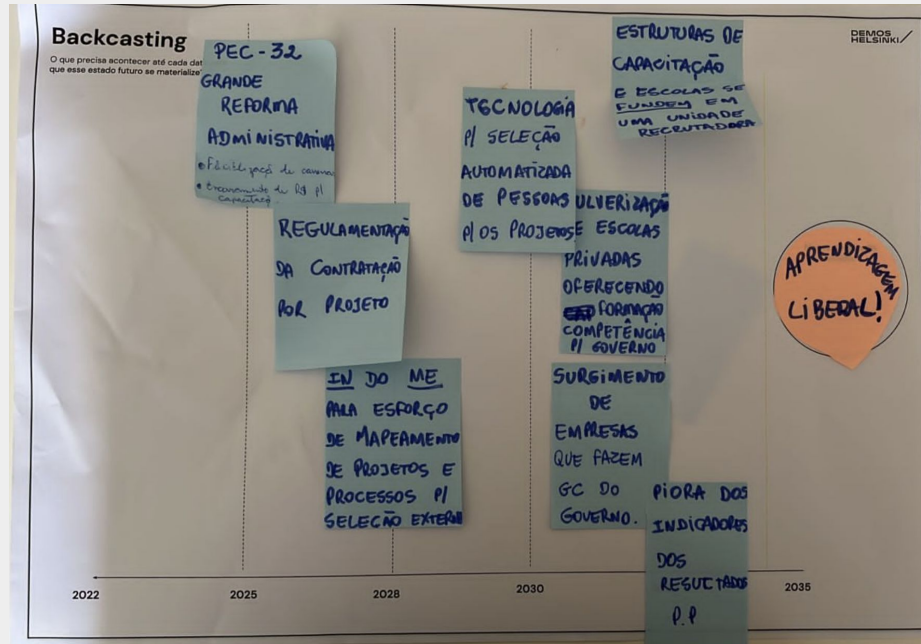 Backcasting
O que precisa acontecer até cada dat
que esse estado futuro se materialize
DEMOS
HELSINKI
PEC-32
GRANDE
REFORMA
ADMINISTRATIVA
de
• Encerramento de R$ p/
REGULAMENTAÇÃO
DA CONTRATAÇÃO
POR PROJETO
IN DO ME
PARA ESFORÇO
DE MAPEAMENTO
DE PROJETOS E
PROCESSOS P/
SELEÇÃO EXTERN
TECNOLOGIA
P/ SELEÇÃO
AUTOMATIZADA
DE PESSOAS
P/ OS PROJETOS
ESTRUTURAS DE
CAPACITAÇÃO
E ESCOLAS SE
FUNDEM EM
UMA UNIDADE
RECRUTADORA
ULVERIZAÇÃO
E ESCOLAS
PRIVADAS
OFERECENDO
FORMAÇÃO
COMPETÊNCIA
P/ GOVERNO
SURGIMENTO
DE
EMPRESAS
QUE FAZEM
GC DO
GOVERNO.
PIORA DOS
INDICADORES
DOS
RESULTADOS
P.P
APRENDIZAGEM
LIBERAL!
2022
2025
2028
2030
2035